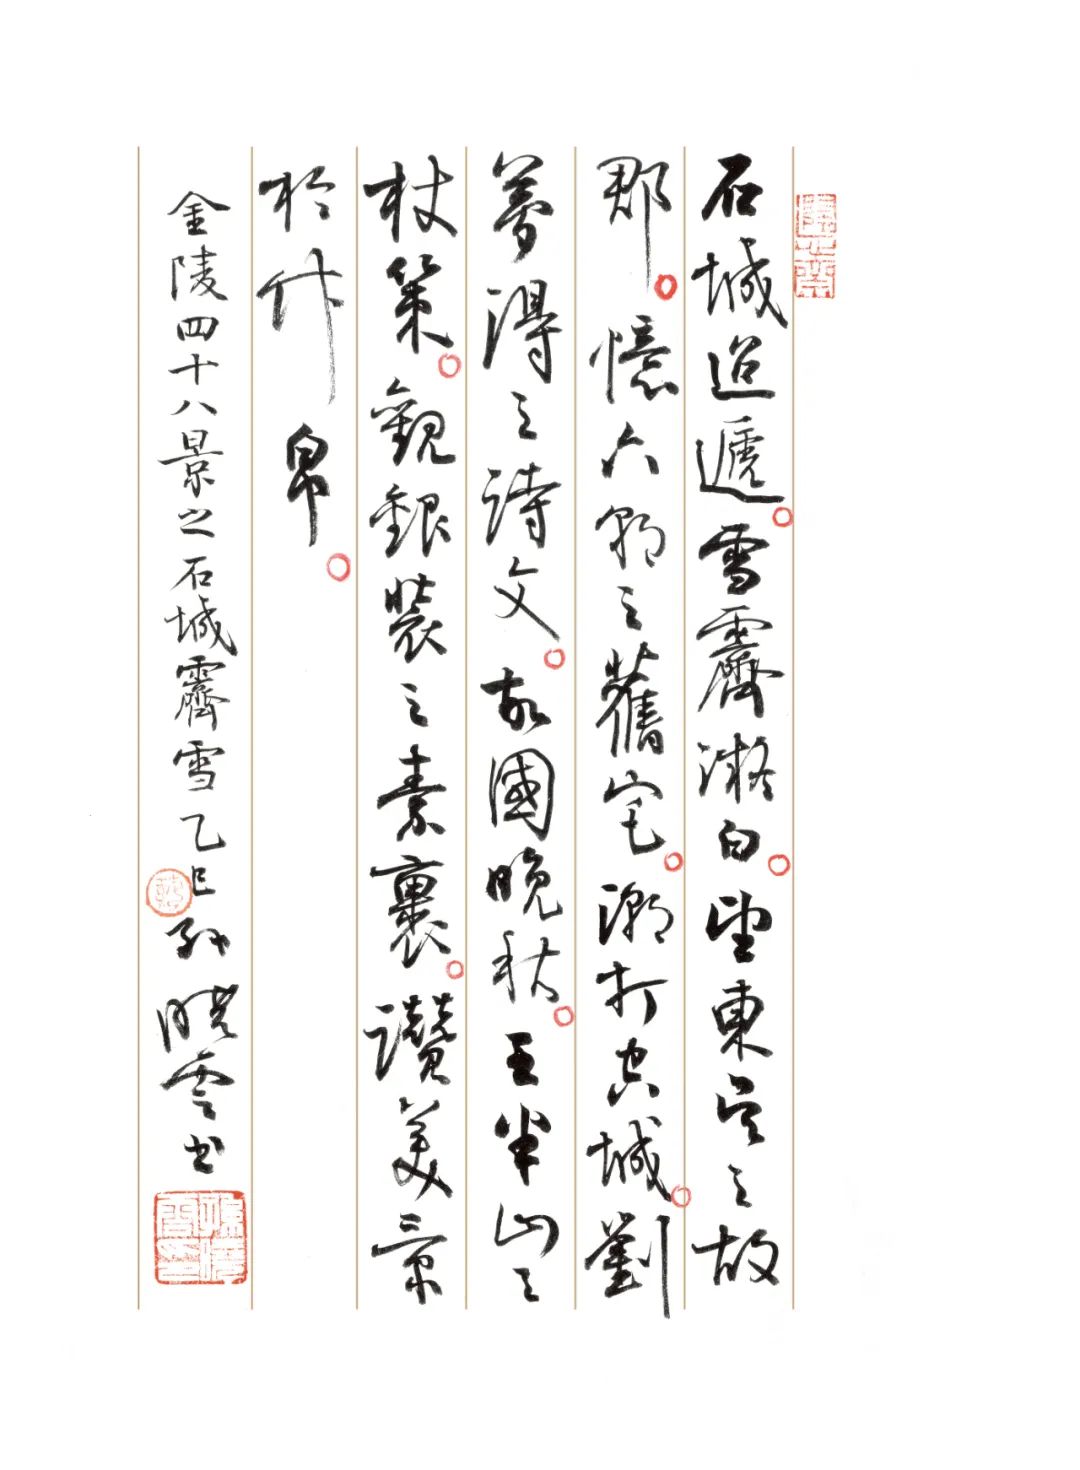 石城迢遞。雪霽凝白。望東吳之故
郡。憶六朝之舊宅。潮打空城。劉
夢得之詩文。故國晚秋。王半山之
杖策。觀銀裝之素裹。讚美景
於竹帛。
金陵四十八景之石城霽雪 乙巳 孫曉雲书